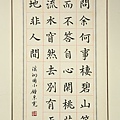 問余何事棲碧山笑
而不答自心閑桃花
流水窅然去別有天
地非人間